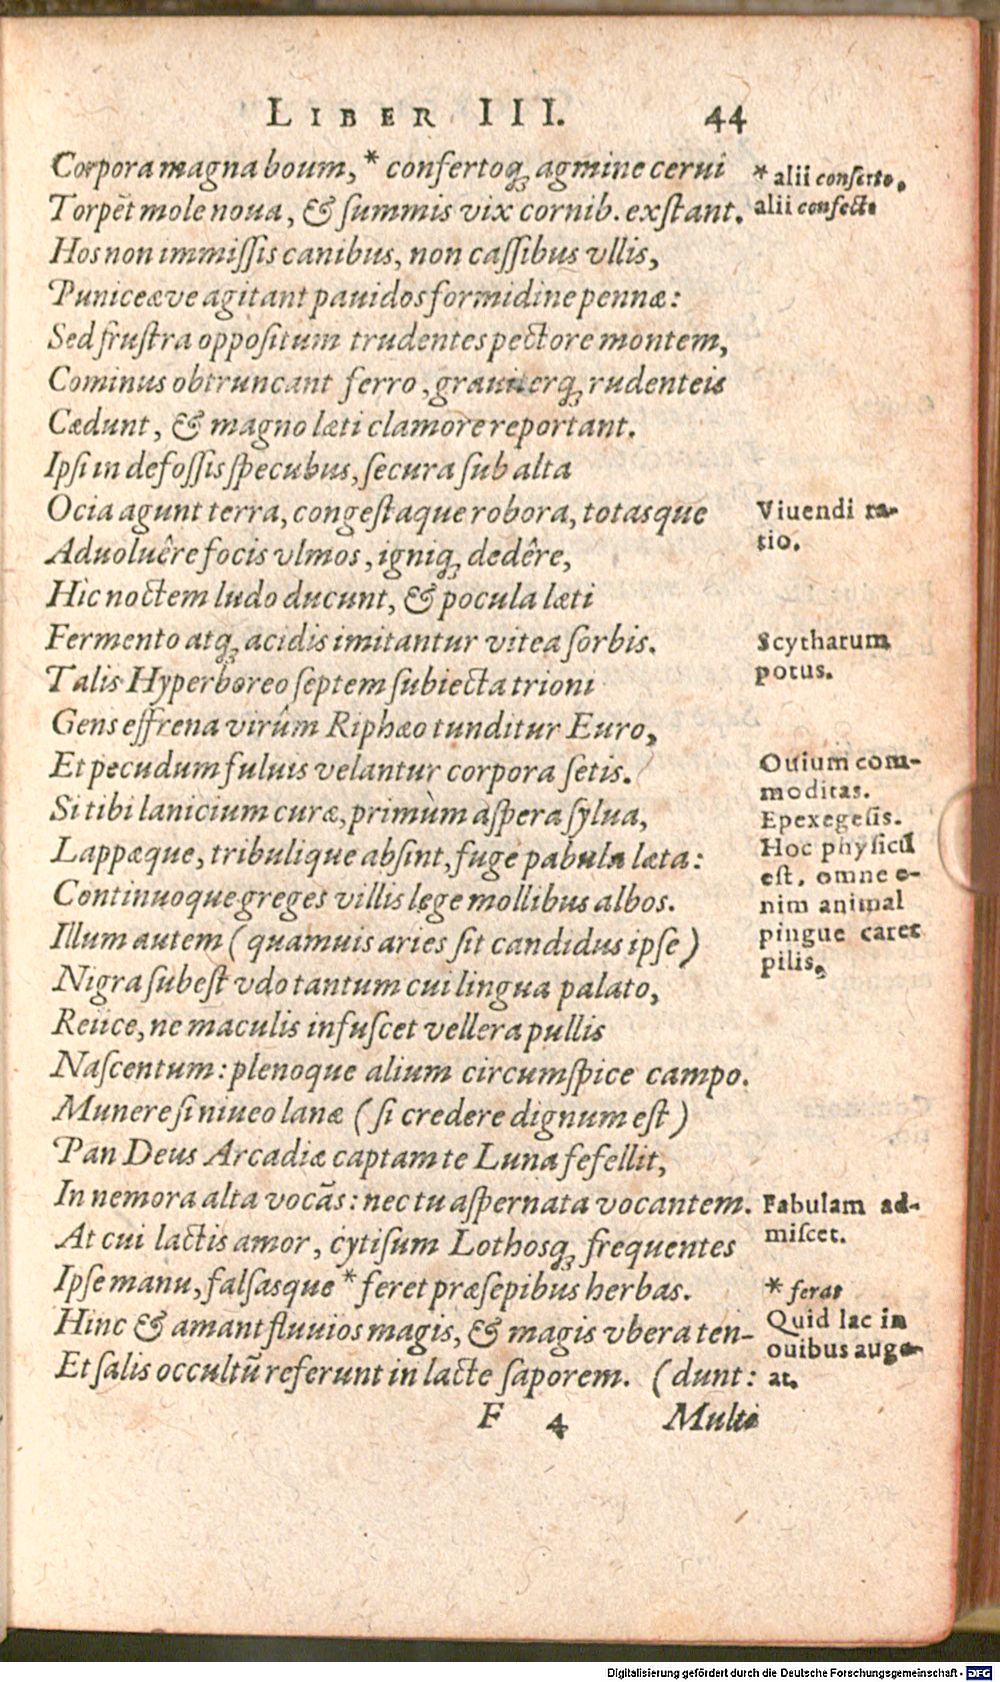 LIBER III. 44
Corpora magna boum, * confertoq́; agmine cerui
Torpēt mole noua, & ſummis vix cornib. exſtant.
Hos non immiſſis canibus, non caſſibus vllis,
Puniceæve agitant pauidos formidine pennæ:
Sed fruſtra oppoſitum trudentes pectore montem,
Cominus obtruncant ferro, grauiterq́; rudenteis
Cædunt, & magno læti clamore reportant.
Ipſi in defoſſis ſpecubus, ſecura ſub alta
Ocia agunt terra, congeſtaque robora, totasque
Aduoluêre focis vlmos, igniq́; dedêre,
Hic noctem ludo ducunt, & pocula læti
Fermento atq́; acidis imitantur vitea ſorbis.
Talis Hyperboreo ſeptem ſubiecta trioni
Gens effrena virûm Riphæo tunditur Euro,
Et pecudum fuluis velantur corpora ſetis.
Si tibi lanicium curæ, primùm aſpera ſylua,
Lappæque, tribulique abſint, fuge pabula læta:
Continuoque greges villis lege mollibus albos.
Illum autem (quamuis aries ſit candidus ipſe)
Nigra ſubeſt vdo tantum cui lingua palato,
Reiice, ne maculis infuſcet vellera pullis
Naſcentum: plenoque alium circumſpice campo.
Munere ſi niueo lanæ (ſi credere dignum eſt)
Pan Deus Arcadiæ captam te Luna fefellit,
In nemora alta vocās: nec tu aſpernata vocantem.
At cui lactis amor, cytiſum Lothosq́; frequentes
Ipſe manu, falſasque * feret præſepibus herbas.
Hinc & amant fluuios magis, & magis vbera ten-
Et ſalis occultū referunt in lacte ſaporem. (dunt:
F 4 Multi
* alii conſerto,
alii confecto
Viuendi ra-
tio.
Scytharum
potus.
Ouium com-
moditas.
Epexegeſis.
Hoc phyſicū
eſt, omne e-
nim animal
pingue caret
pilis.
Fabulam ad-
miſcet.
* ferat
Quid lac in
ouibus auge-
at.
Digitalisierung gefördert durch die Deutsche Forschungsgemeinschaft - DFG